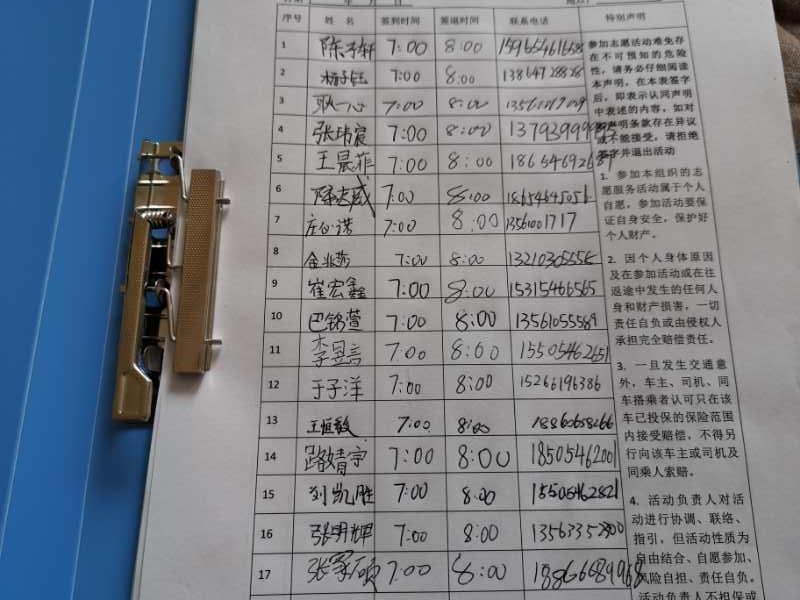 序号 姓 名 签到时间 签退时间 联系电话 特别声明
1 陈子轩 7:00 8:00
2 杨子钰 7:00 8:00 13864728828
3 耿一心 7:00 8:00
4 张炜宸 7:00 8:00
5 王晨菲 7:00 8:00
6 陈志威 7:00 8:00 18654645056
7 7:00 8:00 13561001717
8 7:00 8:00
9 崔宏鑫 7:00 8:00 15315466565
10 巴铭萱 7:00 8:00 13561055589
11 李昱言 7:00 8:00 15505462651
12 于子洋 7:00 8:00 15266196386
13 王恒毅 7:00 8:00 18860658266
14 路婧宇 7:00 8:00 18505462001
15 刘凯胜 7:00 8:00 15505462821
16 张明辉 7:00 8:00
17 张家硕 7:00 8:00 18866689968
参加志愿活动难免存
在不可预知的危险
性，请务必仔细阅读
本声明，在本表签字
后，即表示认同声明
中表述的内容，如对
声明条款存在异议
或不能接受，请拒绝
签字并退出活动
1. 参加本组织的志
愿服务活动属于个人
自愿，参加活动要保
证自身安全，保护好
个人财产。
2. 因个人身体原因
及在参加活动或在往
返途中发生的任何人
身和财产损害，一切
责任自负或由侵权人
承担完全赔偿责任。
3. 一旦发生交通意
外，车主、司机、同
车搭乘者认可只在该
车已投保的保险范围
内接受赔偿，不得另
行向该车主或司机及
同乘人索赔。
4. 活动负责人对活
动进行协调、联络、
指引，但活动性质为
自由结合、自愿参加、
风险自担、责任自负。
活动负责人不担保或